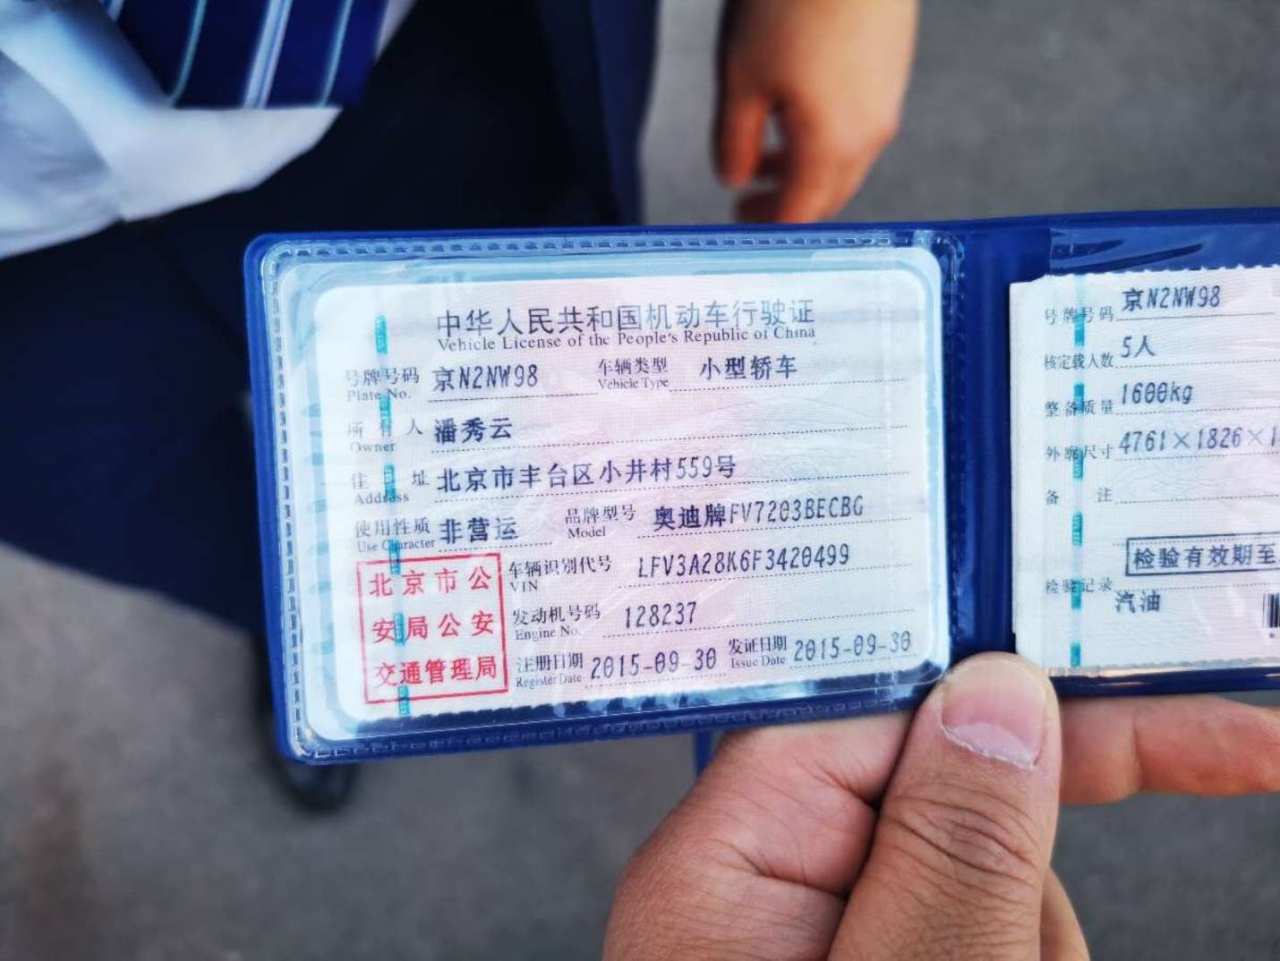 中华人民共和国机动车行驶证
Vehicle License of the People's Republic of China
号牌号码 京N2NW98 车辆类型 小型轿车
Plate No. Vehicle Type
所有人 潘秀云
Owner
住址 北京市丰台区小井村559号
Address
使用性质 非营运 品牌型号 奥迪牌FV7203BECBG
Use Character Model
车辆识别代号 LFV3A28K6F3420499
VIN
发动机号码 128237
Engine No.
注册日期 2015-09-30 发证日期 2015-09-30
Register Date Issue Date
北京市公
安局公安
交通管理局
号牌号码 京N2NW98
核定载人数 5人
整备质量 1600kg
外廓尺寸 4761×1826×1
备注
检验有效期至
检验记录
汽油